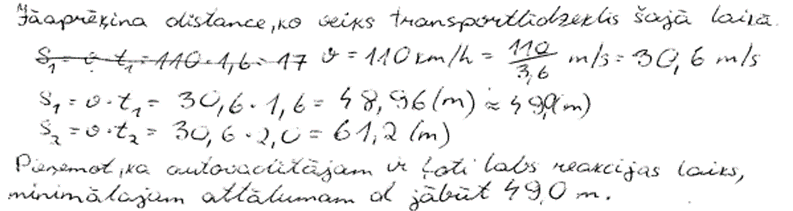 Jāaprēķina distance, ko veiks transportlīdzeklis šajā laikā.
S₁ = v · t₁ = 110 · 1,6 = 17 v = 110 km/h = 110/3,6 m/s = 30,6 m/s
S₁ = v · t₁ = 30,6 · 1,6 = 48,96 (m) ≈ 49,0 (m)
S₂ = v · t₂ = 30,6 · 2,0 = 61,2 (m)
Pieņemot, ka autovadītājam ir ļoti labs reakcijas laiks,
minimālajam attālumam d jābūt 49,0 m.